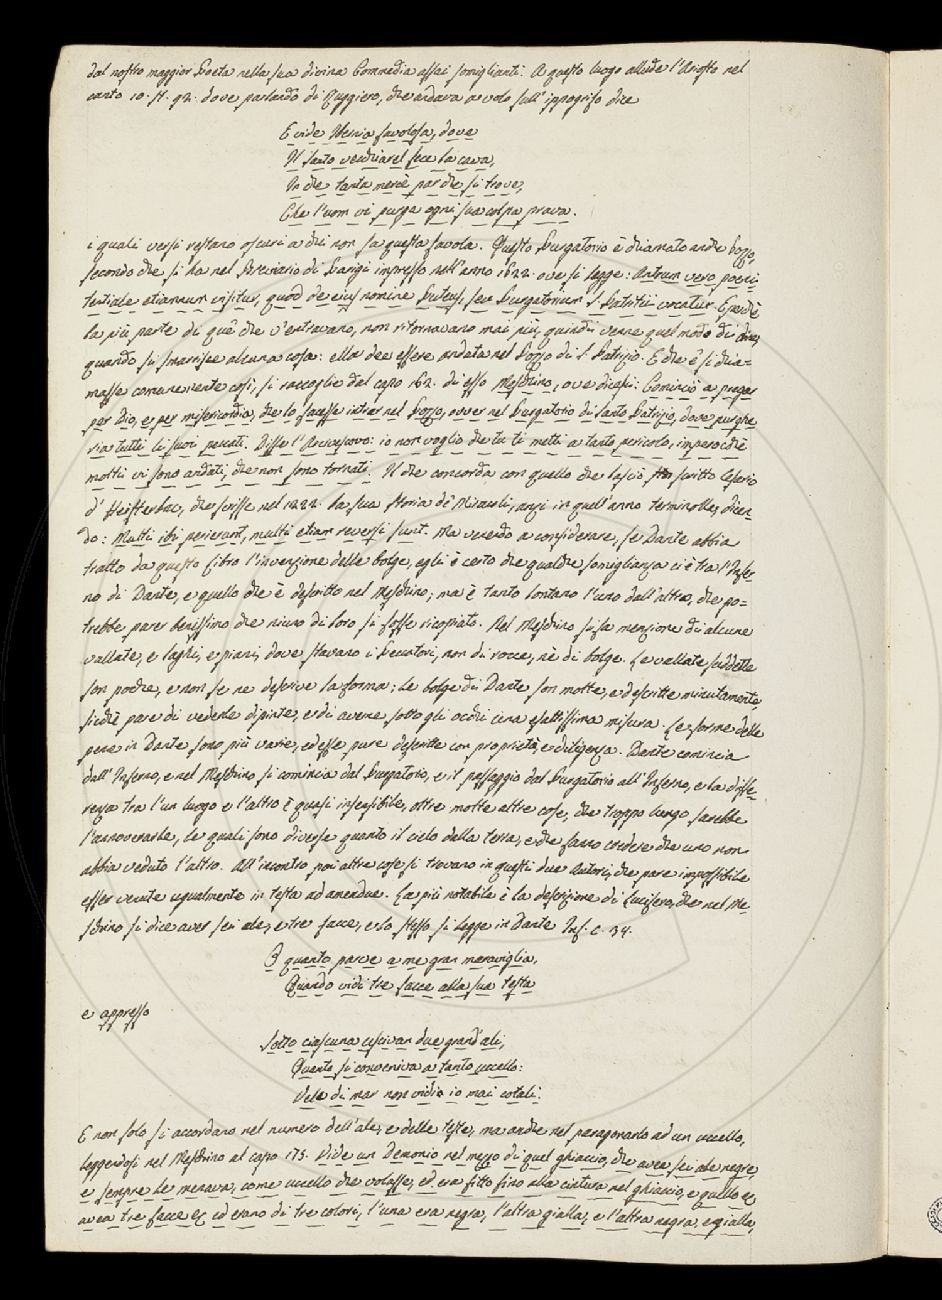 dal nostro maggior Poeta nella sua divina Commedia assai somiglianti. A questo luogo allude l'Ariosto nel
canto 10. St. 92. dove parlando di Ruggiero, che andava a volo sull'ippogrifo dice
E vide Ibernia favolosa, dove
Il santo vecchiarel fece la cava,
In che tanta mercè par che si trove,
Che l'uom vi purga ogni sua colpa prava.
i quali versi restano oscuri a chi non sa questa favola. Questo Purgatorio è chiamato anche Pozzo,
secondo che si ha nel Breviario di Parigi impresso nell'anno 1622. ove si legge: Antrum vero poeni-
tentiale etiamnum visitur, quod de ejus nomine Puteus, seu Purgatorium S. Patritii vocatur. E perchè
la più parte di quei che v'entravano, non ritornavano mai più, quindi venne quel modo di dire,
quando si smarrisce alcuna cosa: ella dee essere andata nel Pozzo di S. Patrizio. E che e' si chia-
masse comunemente così, si raccoglie dal capo 162. di esso Meschino, ove dicesi: Cominciò a pregar
per Dio, e per misericordia, che lo facesse intrar nel Pozzo, ovver nel Purgatorio di Santo Patrizio, dove purghe
ria tutti li suoi peccati. Disse l'Arcivescovo: io non voglio che tu ti metti a tanto pericolo, imperocchè
molti vi sono andati, che non sono tornati. Il che concorda con quello che lasciò scritto Cesario
d'Heisterbac, che scrisse nel 1222. la sua storia de' Miracoli, anzi in quell'anno terminolla, dicen-
do: Multi ibi perierunt, multi etiam reversi sunt. Ma venendo a considerare, se Dante abbia
tratto da questo libro l'invenzione delle bolge, egli è certo che qualche somiglianza ci è tra l'Infer-
no di Dante, e quello che è descritto nel Meschino; ma è tanto lontano l'uno dall'altro, che po-
trebbe parer benissimo che niuno di loro si fosse ricopiato. Nel Meschino si fa menzione di alcune
vallate, e laghi, e piani, dove stavano i Peccatori, non di rocce, nè di bolge. Le vallate suddette
son poche, e non se ne descrive la forma; le bolge di Dante son molte, e descritte minutamente,
sicchè pare di vederle dipinte, e di averne sotto gli occhi una esattissima misura. Le forme delle
pene in Dante sono più varie, ed esse pure descritte con proprietà, e diligenza. Dante comincia
dall'Inferno, e nel Meschino si comincia dal Purgatorio, e il passaggio dal Purgatorio all'Inferno, e la diffe-
renza tra l'un luogo e l'altro è quasi insensibile, oltre molte altre cose, che troppo lungo sarebbe
l'annoverarle, le quali sono diverse quanto il cielo dalla terra, e che fanno credere che uno non
abbia veduto l'altro. All'incontro poi altre cose si trovano in questi due Autori, che pare impossibile
esser venute ugualmente in testa ad amendue. La più notabile è la descrizione di Lucifero, che nel Me-
schino si dice aver sei ale, e tre facce, e lo stesso si legge in Dante Inf. C. 34.
O quanto parve a me gran meraviglia,
Quando vidi tre facce alla sua testa
e appresso
Sotto ciascuna uscivan due grand'ali,
Quanto si conveniva a tanto uccello:
Vele di mar non vidi io mai cotali.
E non solo si accordano nel numero dell'ale, e delle teste, ma anche nel paragonarlo ad un uccello,
leggendosi nel Meschino al capo 175. Vide un Demonio nel mezzo di quel ghiaccio, che avea sei ale negre,
e sempre le menava, come uccello che volasse, ed era fitto fino alla cintura nel ghiaccio, e quello &c
avea tre facce &c ed erano di tre colori, l'una era negra, l'altra gialla, e l'altra negra, e gialla,